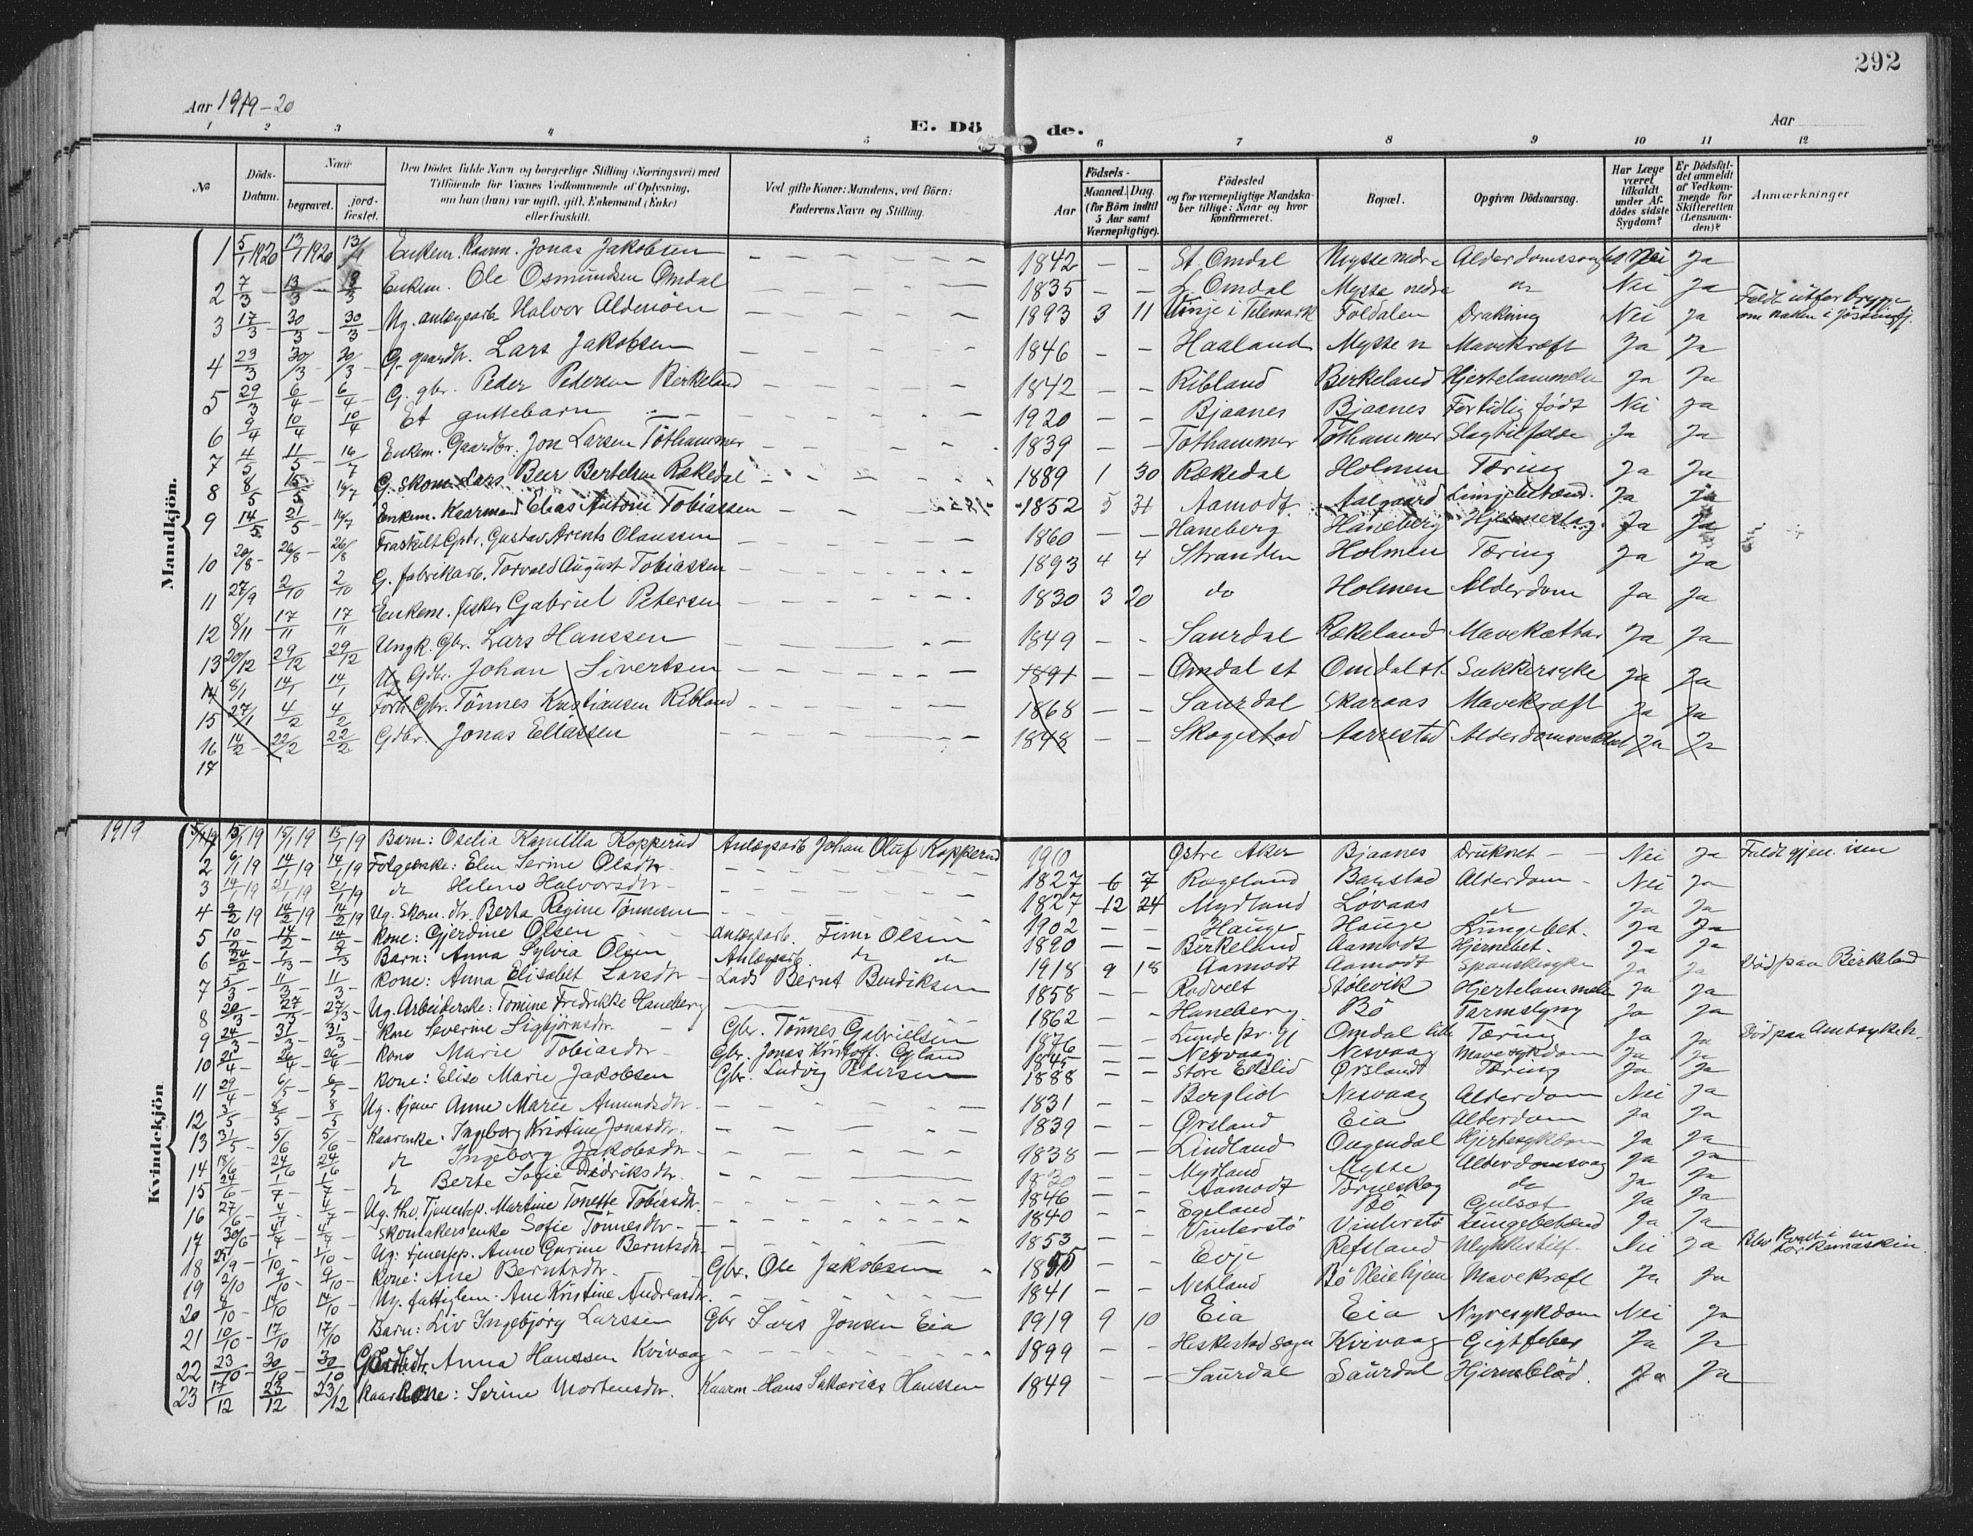 292
Aar 1919-20
Aar
E. Döde.
1 2 3 4 5 6 7 8 9 10 11 12
№ Döds-Datum. Naar begravet. jordfæstet. Den Dödes fulde Navn og borgerlige Stilling (Næringsvei) med Tilföiende for Voxnes Vedkommende af Oplysning, om han (hun) var ugift, gift, Enkemand (Enke) eller fraskilt. Ved gifte Koner: Mandens, ved Börn: Faderens Navn og Stilling. Födsels- Aar Maaned. Dag. (for Börn indtil 5 Aar samt Værnepligtige). Födested og for værnepligtige Mandskaber tillige: Naar og hvor konfirmeret. Bopæl. Opgiven Dödsaarsag. Har Læge været tilkaldt under Afdödes sidste Sygdom? Er Dödsfaldet anmeldt af Vedkommende for Skifteretten (Lensmanden)? Anmærkninger
Mandkjön.
1 5/1 1920 13/1 1920 13/1 Enkem. Kaarm. Jonas Jakobsen 1842 St. Omdal Mysse nedre Nei Ja
2 7/3 13/3 13/3 Enkem. Ole Osmundsen Omdal 1835 L. Omdal Mysse nedre Nei Ja
3 17/3 30/3 30/3 Ug. anlægsarb. Halvor Aldenöen 1893 3 11 Vinje i Telemark Foldalen Drukning Nei Ja Faldt utfor brygge
4 23/3 30/3 30/3 G. gaardbr. Lars Jakobsen 1846 Haaland Mysse n Mavekræft Ja Ja
5 29/3 6/4 6/4 G. gbr. Peder Pederson Birkeland 1842 Ribland Birkeland Hjertelammelse Ja Ja
6 9/4 10/4 10/4 Et guttebarn 1920 Bjaanes Bjaanes Fortidlig født Nei Ja
7 4/5 11/5 16/7 Enkem. Gaardbr. Jon Larsen Tothammer 1839 Tothammer Tothammer Slagtilfælde Ja Ja
8 8/5 15/5 16/7 G. skom. Lars Beer Bertelsen Rækedal 1889 1 30 Rækedal Holmen Tæring Ja Ja
9 14/5 21/5 16/7 Enkem. Kaarmand Elias Antoni Tobiassen 1852 5 31 Aamodt Aalgaard Ja Ja
10 20/8 26/8 26/8 Fraskilt Gbr. Gustav Arents Olaussen 1860 Haneberg Haneberg Hjerneslag Ja Ja
11 27/9 2/10 2/10 G. fabrikarb. Torvald August Tobiassen 1893 4 4 Stranden Holmen Tæring Ja Ja
12 8/11 17/11 17/11 Enkem. fisker Gabriel Petersen 1830 3 20 do Holmen Alderdom Ja Ja
13 20/12 29/12 29/12 Ungk. Gbr. Lars Hanssen 1849 Saurdal Rækeland Mavekattar Ja Ja
14 8/1 14/1 14/1 Ug Gdbr. Johan Sivertsen 1891 Omdal st Omdal st Sukkersyke Ja Ja
15 27/1 4/2 4/2 Forh. Gbr. Tönnes Kristiansen Ribland 1868 Saurdal Skaraas Mavekræft Ja Ja
16 14/2 22/2 22/2 Gdbr. Jonas Eliassen 1848 Skogestad Aarrestad Ja Ja
17
1919
Kvindekjön
5/1 19 15/1 19 15/1 19 15/1 19 Barn: Oselia Kamilla Kopperud Anlægsarb Johan Oluf Kopperud 1910 Østre Aker Bjaanes Druknet Nei Ja Faldt gjen. isen
2 6/1 19 14/1 19 14/1 19 Folgeenke: Elen Serine Olsdtr 1827 6 7 Rogeland Alderdom Nei Ja
3 14/1 19 21/1 19 21/1 19 do Helene Halvorsdtr 1827 12 24 Mydland Løvaas do Ja Ja
4 9/2 19 14/2 19 14/2 19 Ug. Skom. dtr. Berta Regine Tønnesen 1902 Hauge Hauge Lungebet. Ja Ja
5 10/2 14/2 14/2 Kone: Gjerdine Olsen anlægsarb. Finn Olsen 1890 Birkeland Aamodt Hjernebet. Ja Ja
6 24/2 1/3 1/3 Barn: Anna Sylvia Olsen Anlægsarb. do do 1918 9 18 Aamodt Aamodt Spanskesyke Ja Ja Död paa Birkeland
7 5/3 11/3 11/3 Kone: Anna Elisabet Larsdtr Lods Bernt Bendiksen 1858 Rødvelt Stølevik Hjertelammelse Ja Ja
8 20/3 27/3 27/3 Ug. Arbeiderske: Tomine Fredrikke Haneberg 1862 Haneberg Bö Tarmslyng Ja Ja
9 24/3 31/3 31/3 Kone Severine Sigbjørnsdtr. Gbr. Tönnes Gabrielsen 1876 Lunde pr. gj Omdal lille Tæring Ja Ja Död paa Amtssykeh.
10 21/4 26/4 26/4 Kone Marie Tobiasdtr Gbr. Jonas Kristoff. Gyland 1845 Nesvaag Nesvaag Mavesykdom Ja Ja
11 29/4 6/5 6/5 Kone: Elise Marie Jakobsen Gbr. Ludvig Petersen 1888 Store Eftelid Ørsland Tæring Ja Ja
12 3/5 8/5 8/5 Ug. tjener Anne Marie Amundsdtr 1831 Bergliot Nesvaag Alderdom Nei Ja
13 31/5 5/6 5/6 Kaarenke. Ingeborg Kristine Jonasdtr. 1839 Ørsland Eia Alderdom Ja Ja
14 18/6 24/6 24/6 do Ingeborg Jakobsdtr. 1838 Lindland Ougendal Hjertesykdom Ja Ja
15 24/6 1/7 1/7 do Berte Sofie Didriksdtr. 1830 Mydland Mysse Alderdomsvag Ja Ja
16 27/6 4/7 4/7 Ug. fhv. Tjenestep. Martine Tonette Tobiasdtr. 1846 Aamodt Torneskog do Ja Ja
17 30/6 4/7 4/7 Skomakersenke Sofie Tönnesdtr 1840 Egeland Bö Gulsot Ja Ja
18 25/9 1/10 1/10 Ug. tjenestep. Anne Gurine Berntsdtr. 1853 Vinterstö Vinterstö Lungebetænd Ja Ja
19 2/10 9/10 9/10 Kone: Ane Berntsdtr. Gbr. Ole Jakobsen 1855 Evje Refsland Ulykkestilf. Nei Ja
20 8/10 14/10 14/10 Ug. fattiglem. Ane Kristine Andreasdtr. 1841 Netland Bö Pleiehjem Mavekræft Ja Ja
21 10/10 17/10 17/10 Barn: Liv Ingebjørg Larssen Gbr Lars Jonsen Eia 1919 9 10 Eia Eia Nyresykdom Nei Ja
22 23/10 30/10 30/10 Anna Hanssen Kvivaag 1899 Heskestad sogn Kvivaag Gigtfeber Ja Ja
23 17/12 23/12 23/12 Kaarkone: Serine Mortensdtr. Kaarm. Hans Sakarias Hanssen 1849 Saurdal Saurdal Hjerneblød. Ja Ja